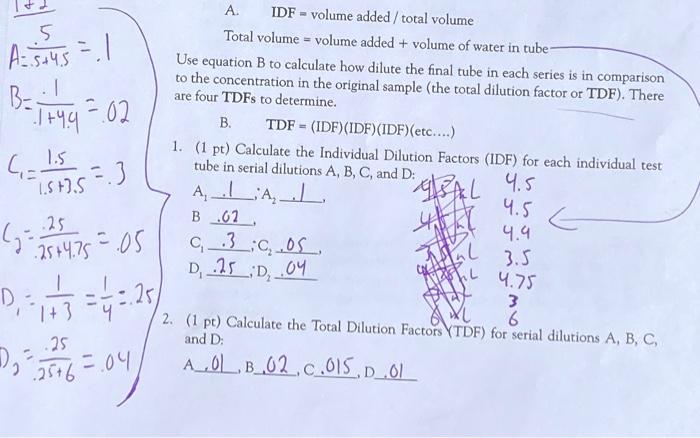 1+2
A. IDF = volume added / total volume
Total volume = volume added + volume of water in tube
Use equation B to calculate how dilute the final tube in each series is in comparison
to the concentration in the original sample (the total dilution factor or TDF). There
are four TDFs to determine.
B. TDF = (IDF)(IDF)(IDF)(etc....)
1. (1 pt) Calculate the Individual Dilution Factors (IDF) for each individual test
tube in serial dilutions A, B, C, and D:
A₁ .1 ; A₂ .1,
B .02,
C₁ .3 ; C₂ .05,
D₁ .25 ; D₂ .04
4.5
4.5
4.9
3.5
4.75
3
6
2. (1 pt) Calculate the Total Dilution Factors (TDF) for serial dilutions A, B, C,
and D:
A .01, B .02, C .015, D .01
A = .5 / .5+4.5 = .1
B = .1 / .1+4.9 = .02
C₁ = 1.5 / 1.5+3.5 = .3
C₂ = .25 / .25+4.75 = .05
D₁ = 1 / 1+3 = 1/4 = .25
D₂ = .25 / .25+6 = .04